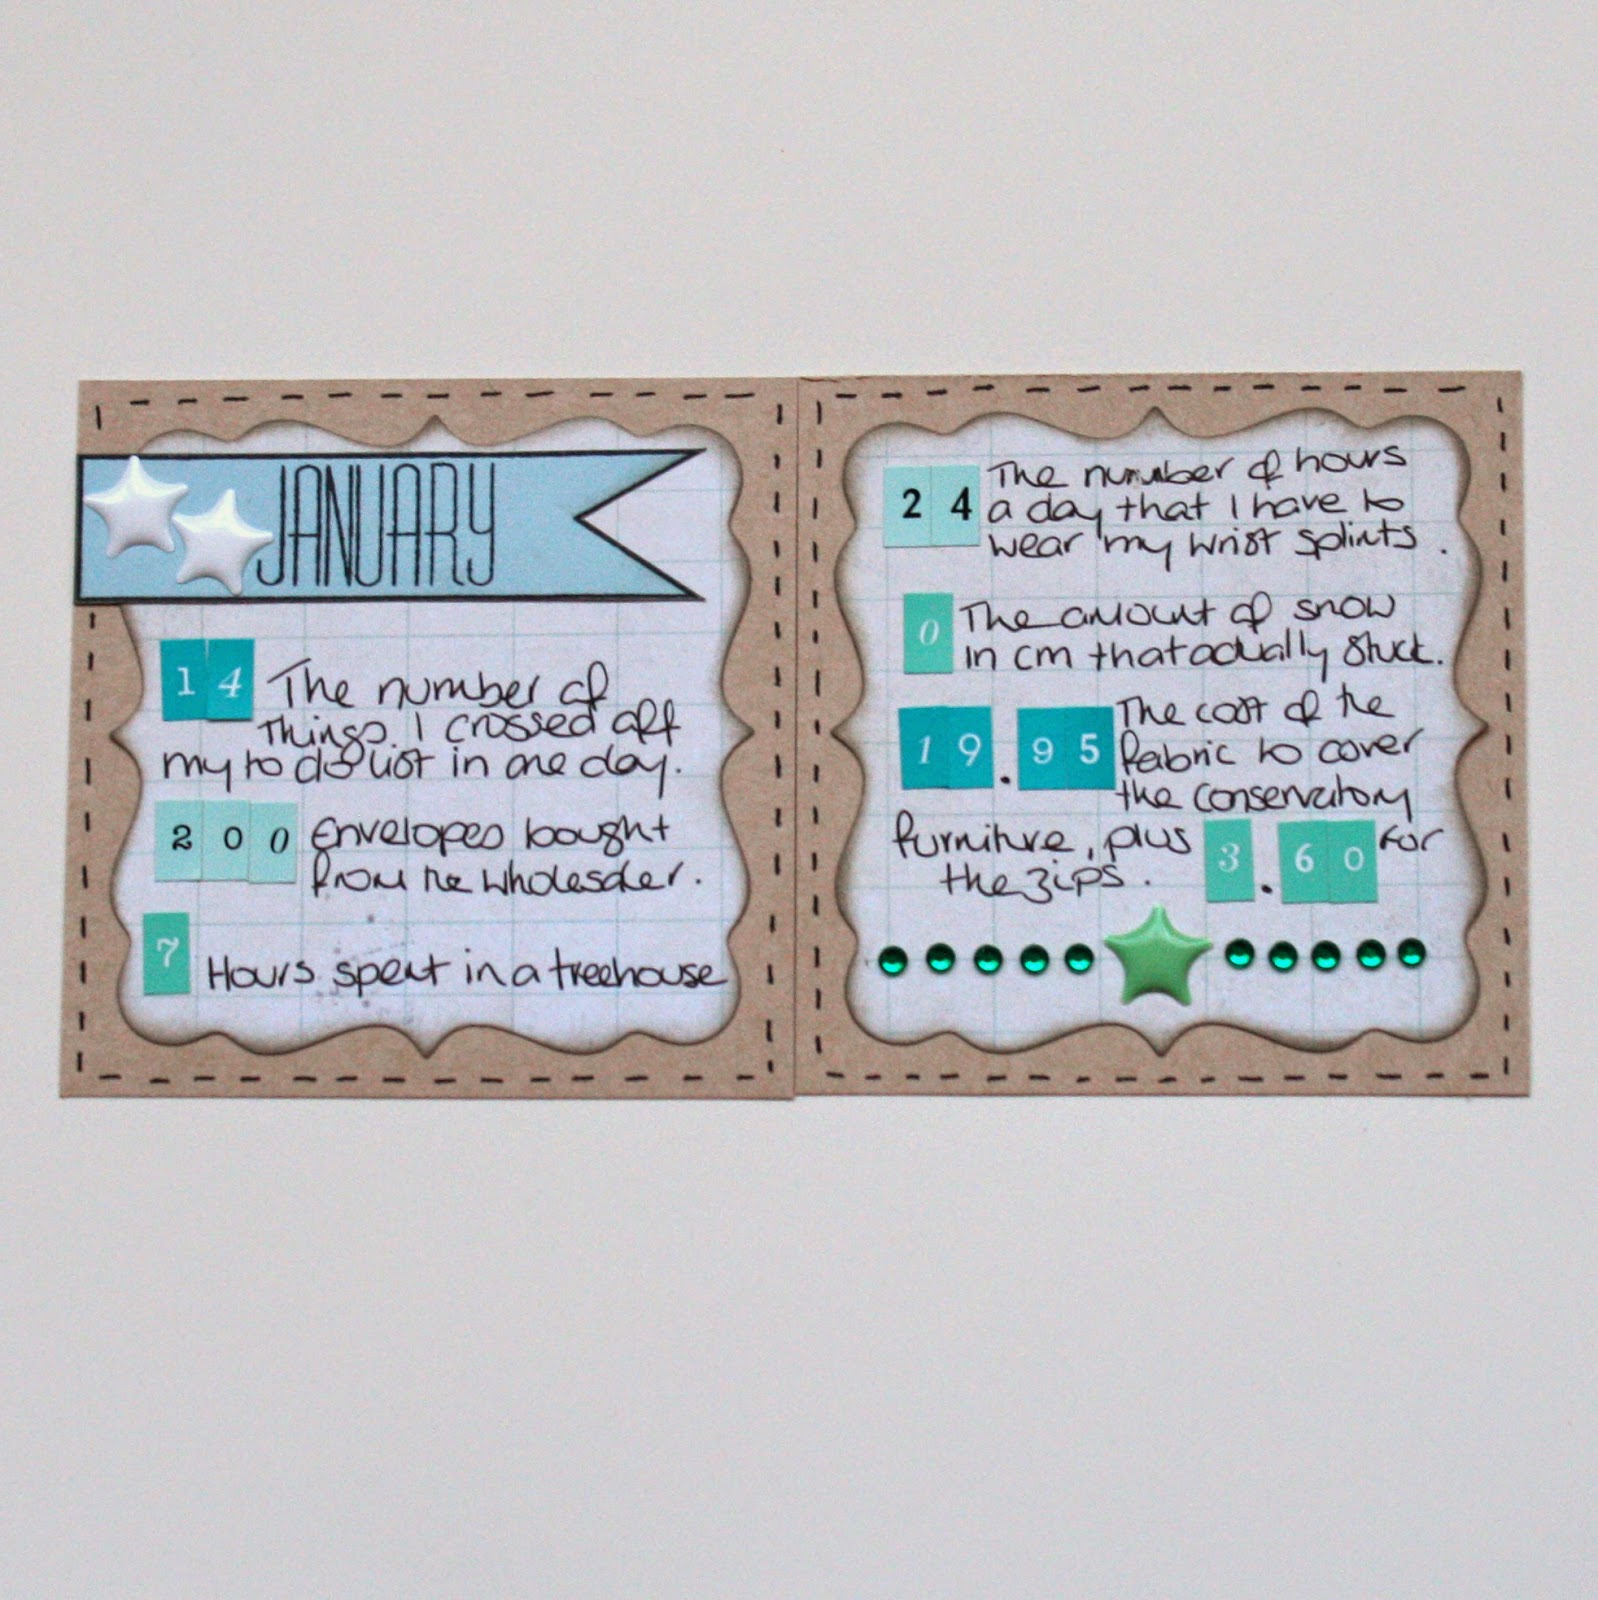 JANUARY
14 The number of
things I crossed off
my to do list in one day.
200 Envelopes bought
from the wholesaler.
7 Hours spent in a treehouse
24 The number of hours
a day that I have to
wear my wrist splints.
0 The amount of snow
in cm that actually stuck.
19.95 The cost of the
fabric to cover
the conservatory
furniture, plus 3.60 for
the zips.